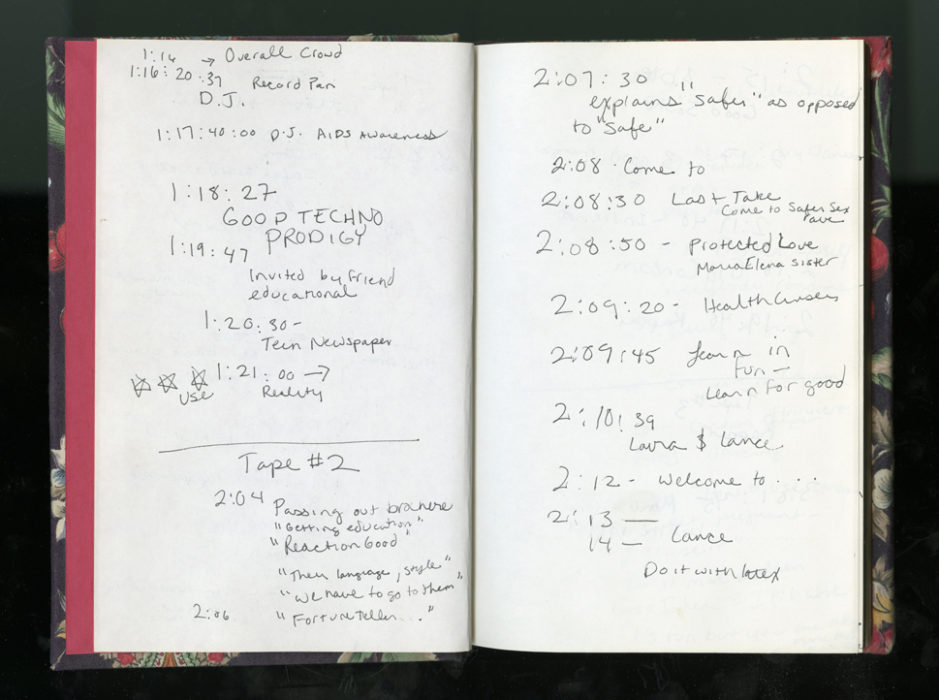 1:16 → Overall Crowd
1:16:20:37 Record Pan
D.J.
1:17:40:00 D.J. AIDS Awareness
1:18:27
GOOD TECHNO
PRODIGY
1:19:47
Invited by friend
educational
1:20:30-
Teen Newspaper
1:21:00 →
use Reality
Tape #2
2:04 Passing out brochure
"Getting education"
"Reaction Good"
"Their language, style"
"we have to go to them"
2:06 "Fortune Teller..."
2:07:30
explains "safer" as opposed
to "safe"
2:08 · Come to
2:08:30 Last Take
Come to Safer Sex
rave
2:08:50 - Protected Love
Maria Elena sister
2:09:20 - Health
2:09:45 learn in
fun -
Learn for good
2:10:39
Laura & Lance
2:12 - Welcome to....
2:13 —
14 — Lance
Do it with latex